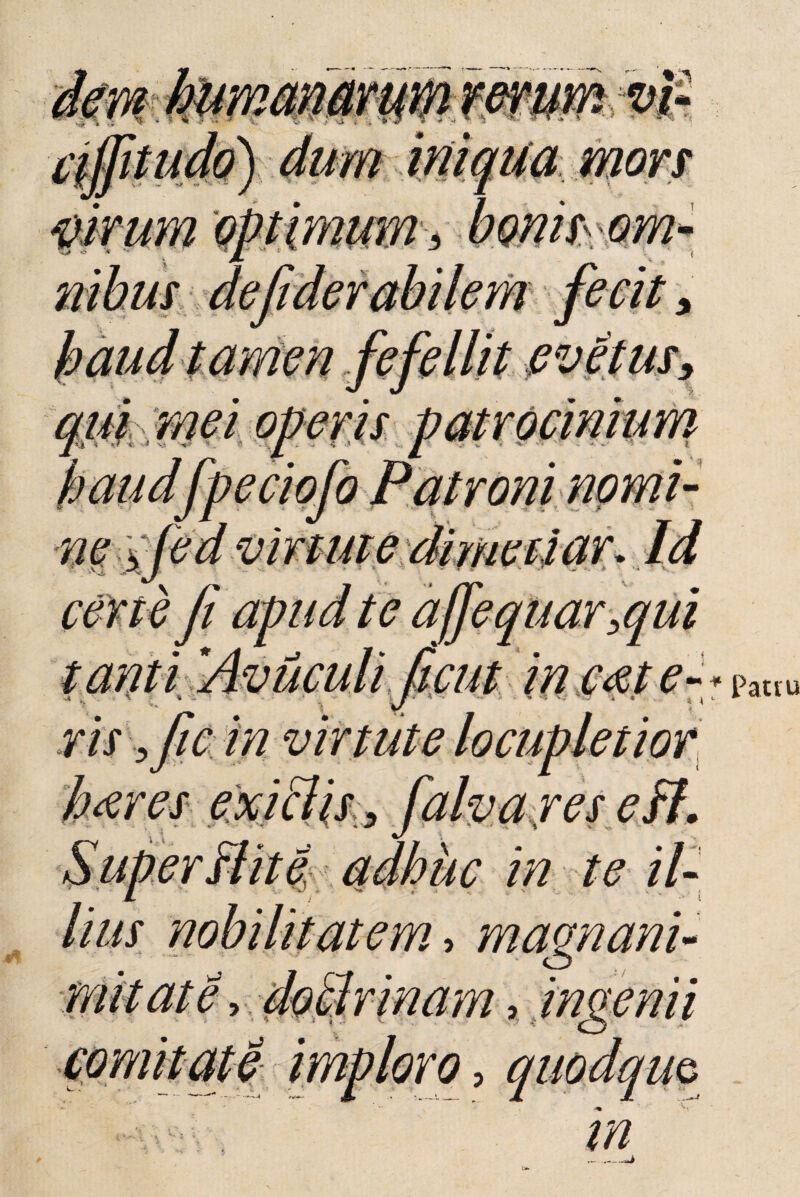 dem humanarum rerum vi-
ciſſitudo) dum iniqua mors
virum optimum, bonis om-
nibus deſiderabilem fecit,
haud tamen fefellit evẽtus,
qui mei operis patrocinium
haud ſpecioſo Patroni nomi-
ne, ſed virtute dimetiar. Id
certè ſi apud te aſſequar, qui
tanti *Avũculi ſicut in cæte-
* Patru
ris, ſic in virtute locupletior
hæres exiſtis, ſalva res eſt.
Superſtitẽ adhùc in te il-
lius nobilitatem, magnani-
mitatẽ, doctrinam, ingenii
comitatẽ imploro, quodque
in